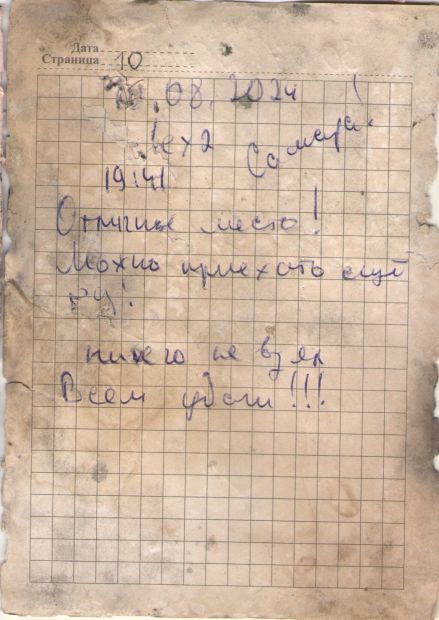 Дата
Страница 10
.08.2024
Лёха Самара.
19:41
Отличное место!
Можно приехать ещё
раз!
ничего не взял
Всем удачи!!!